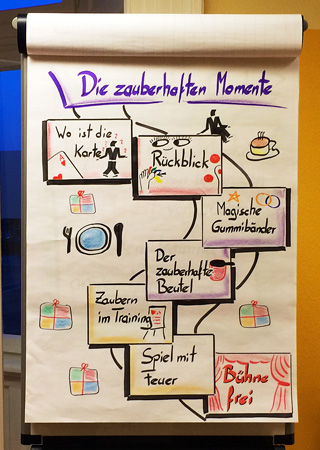 Die zauberhaften Momente
Wo ist die
Karte?
Rückblick
Magische
Gummibänder
Der
zauberhafte
Beutel
Zaubern
im Training
Spiel mit
Feuer
Bühne
frei